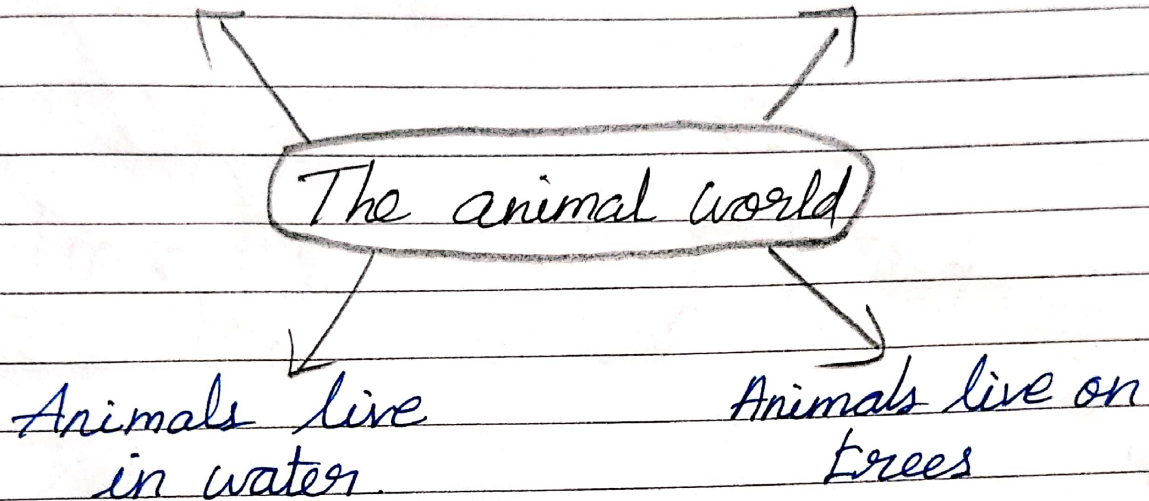 The animal world
Animals live
in water.
Animals live on
trees